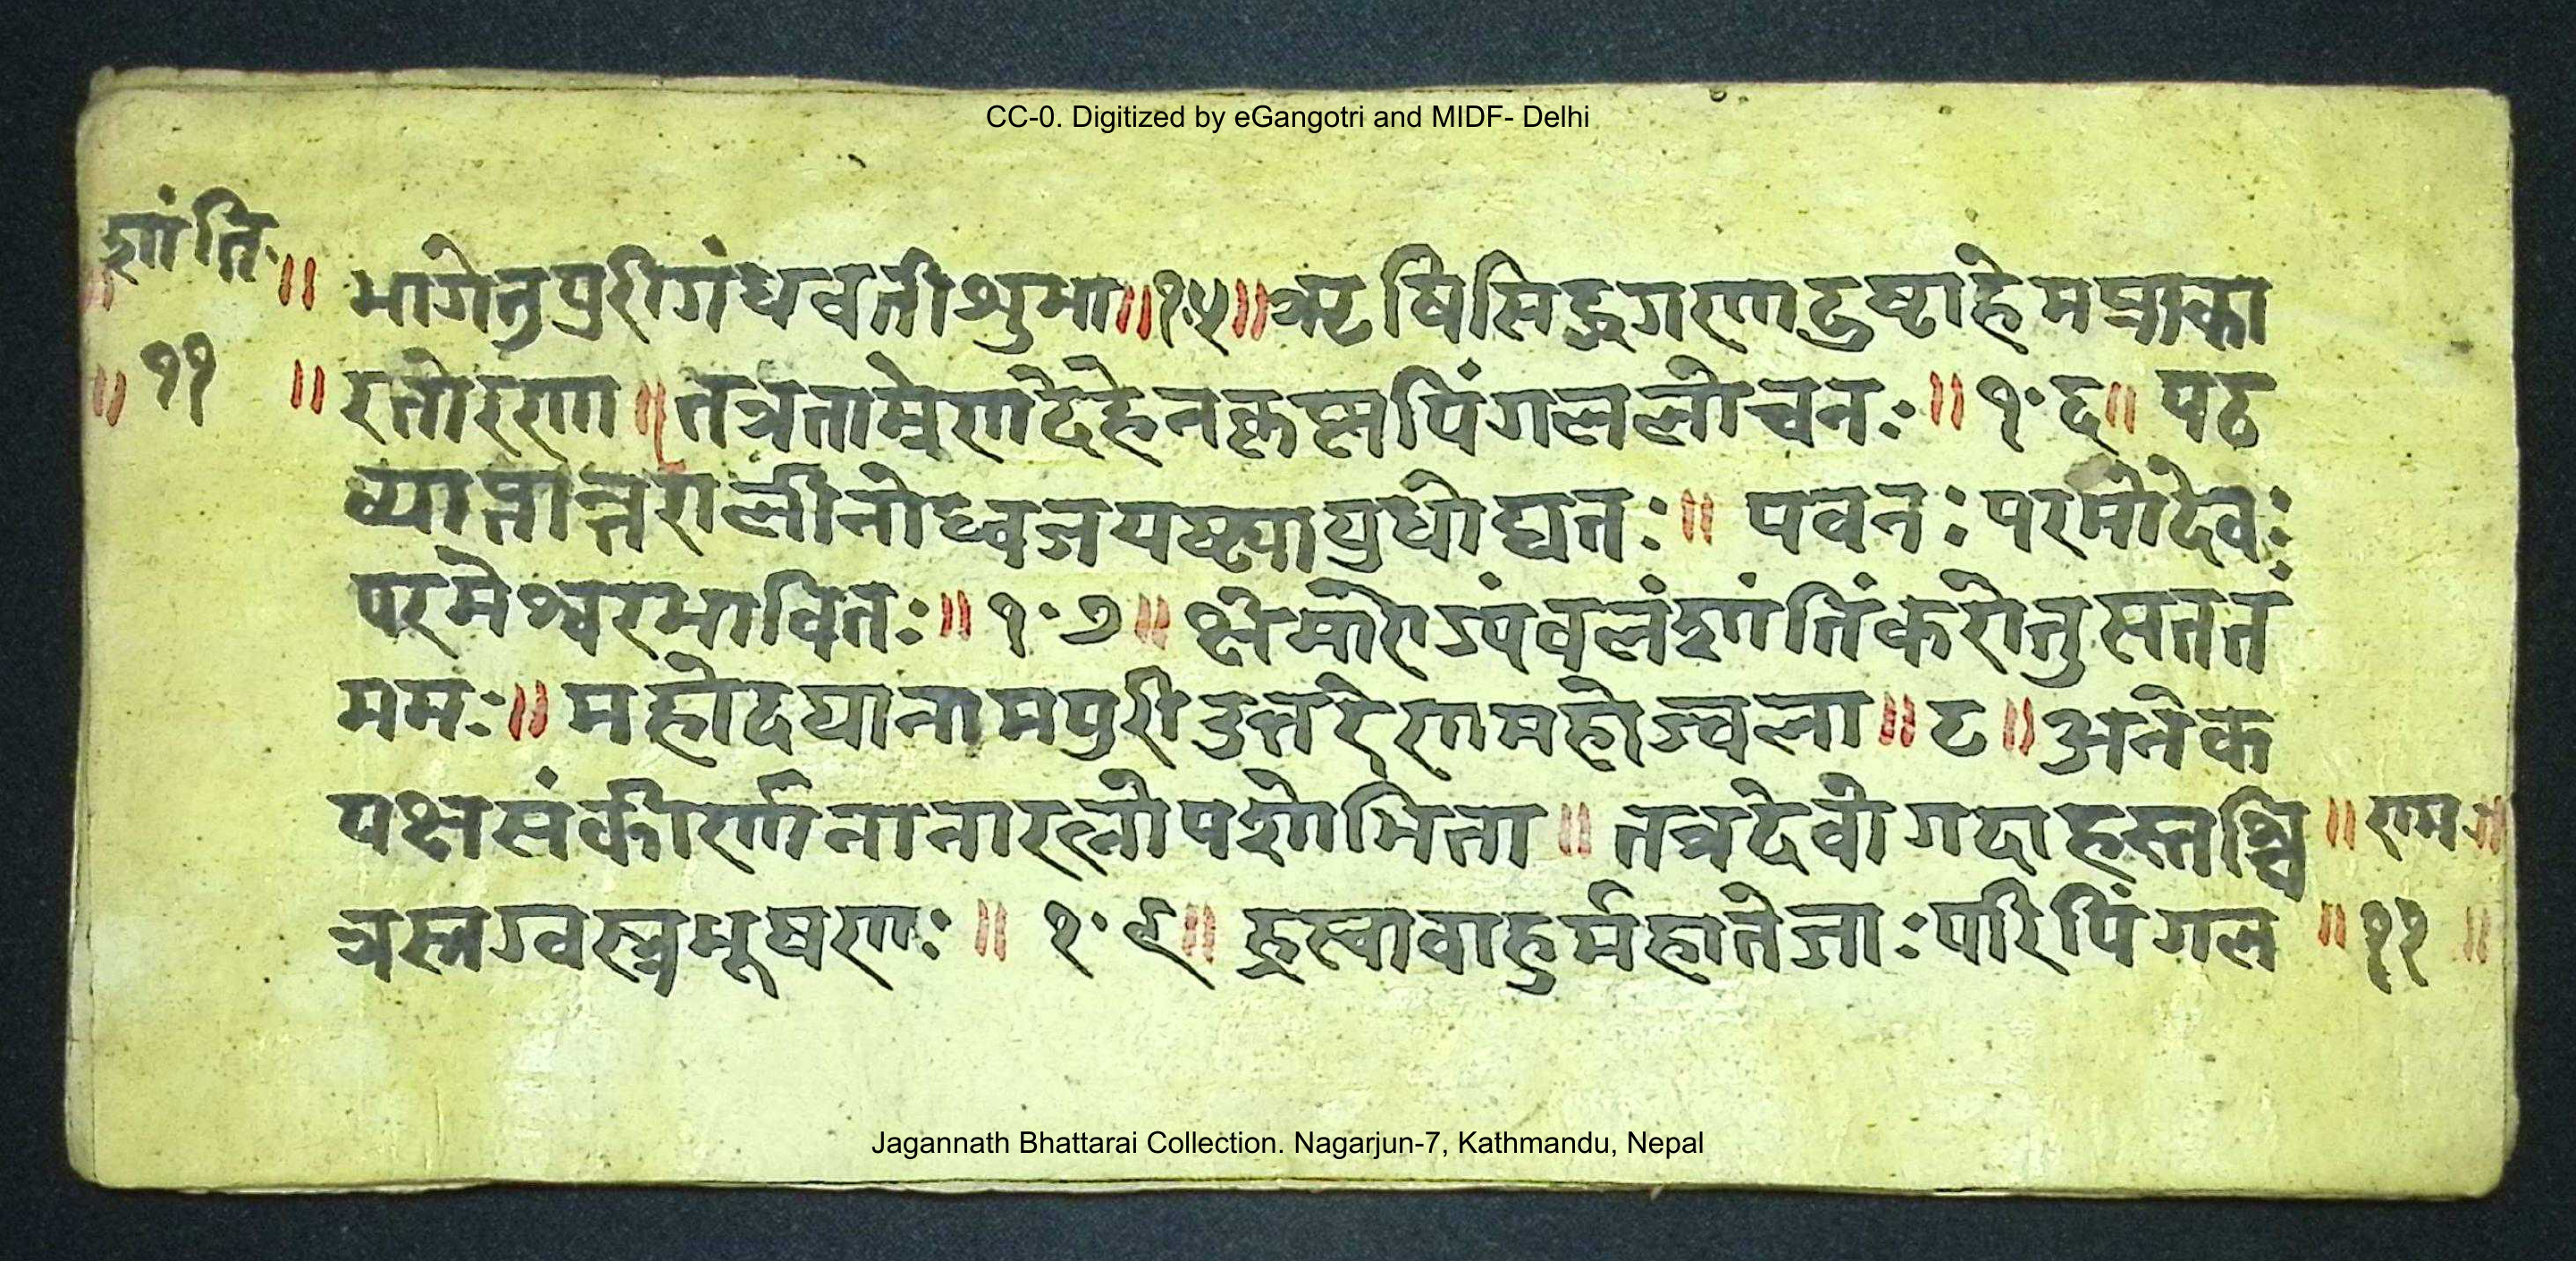 CC-0. Digitized by eGangotri and MIDF- Delhi
शांति
॥ भागेतुपुरीगंधवतीशुभा॥१०५॥ऋषिसिद्धगणदुष्टाहेमप्राका
॥ ११ ॥ रतोरण॥तत्रताम्रेणदेहेनकृष्णपिंगललोचनः॥१०६॥ पठ
व्याप्तान्तरालीनोध्वजयष्ट्यायुधोद्यतः॥ पवनः परमोदेवः
परमेश्वरभावितः॥१०७॥ क्षेमारोग्यंवलंशांतिंकरोतुसततं
ममः॥ महोदयानामपुरीउत्तरेणमहोज्वला॥८॥अनेक
पक्षसंकीर्णनानारत्नोपशोभिता॥ तत्रदेवोगदाहस्तश्चि ॥ राम ॥
त्रस्त्रग्वस्त्रभूषणः॥ १०९॥ ह्रस्वावाहुर्महातेजाःपरिपिंगल ॥ ११ ॥
Jagannath Bhattarai Collection. Nagarjun-7, Kathmandu, Nepal